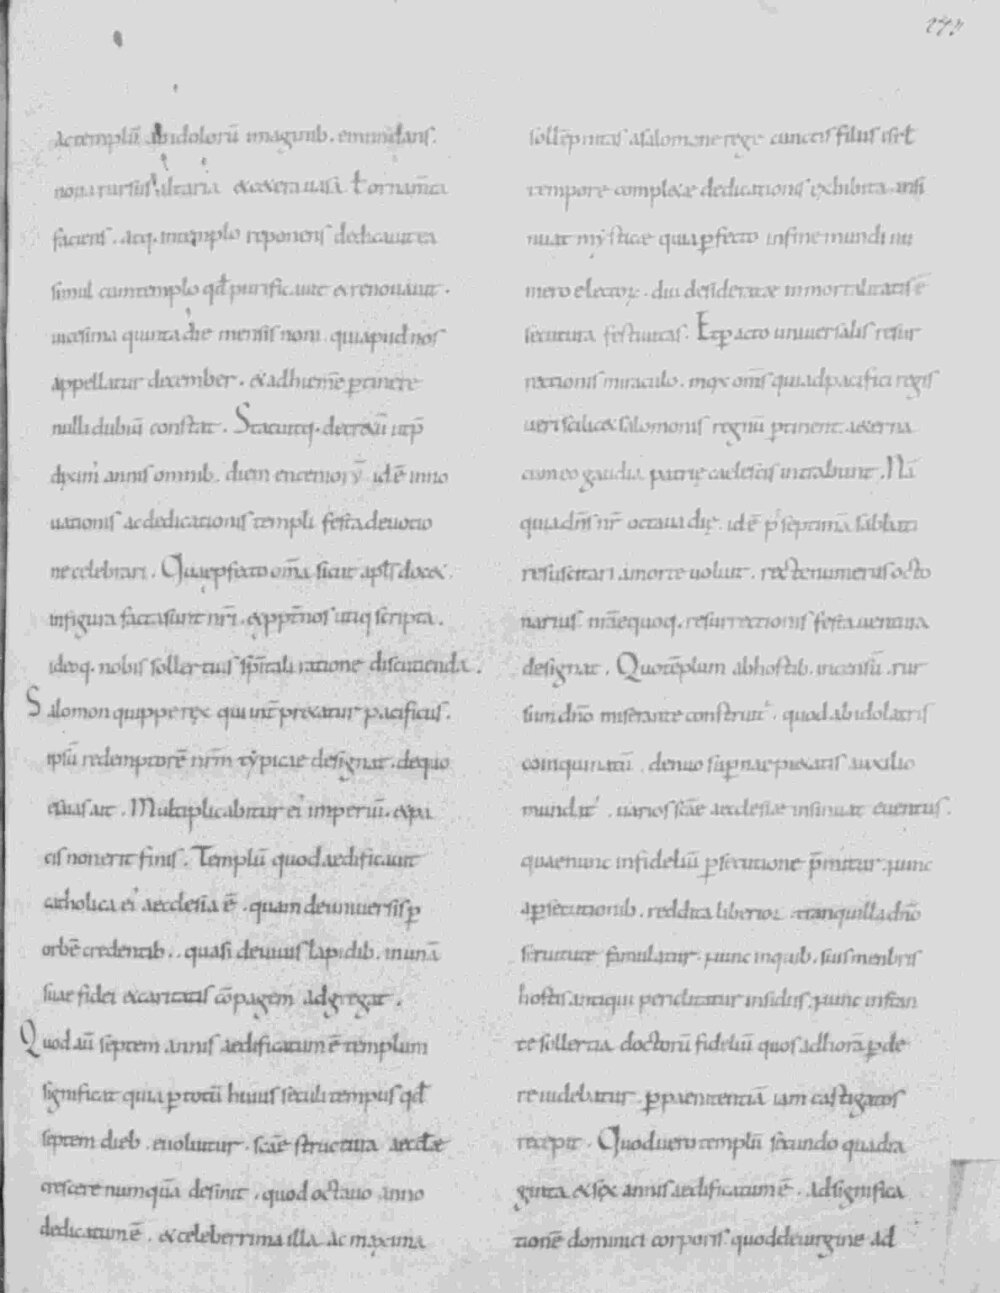 ac templū ab idolorū imaginib. emundans.
noua rursus altaria & cetera uasa ł ornam̄ta
faciens. atq. in templo reponens dedicauit ea
simul cum templo qđ purificauit & renouauit.
uicesima quinta die mensis noni. qui apud nos
appellatur december. & ad hiemē ptinere
nulli dubiū constat. Statuitq. decretū ut p
dixim' annis omnib. diem encenioꝝ idē inno
uationis ac dedicationis templi festa deuotio
ne celebrari. Quae pfecto om̄a sicut apłs docet.
in figura facta sunt nr̄i. & ppt̄ nos utiq scripta.
ideoq. nobis sollertius sp̄itali ratione discutienda.
Salomon quippe rex qui int̄ pretatur pacificus.
ipsū redemptorē nr̄m typicae designat. de quo
esaias ait. Multiplicabitur ei' imperiū. & pa
cis non erit finis. Templū quod aedificauit
catholica ei' aecclesia ē. quam de uniuersis p
orbē credentib.. quasi de uiuis lapidib. in unā
suae fidei & caritatis cōpagem adgregat.
Quod aū septem annis aedificatum ē templum
significat quia p totū huius seculi tempus qđ
septem dieb. euoluitur. scāe structura aecclae
crescere numquā desinit. quod octauo anno
dedicatum ē. & celeberrima illa ac maxima
sollēpnitas a salomone rege cunctis filiis isrł
tempore completae dedicationis exhibita. insi
nuat mysticae quia pfecto in fine mundi nu
mero electoꝝ. diu desideratae inmortalitatis ē
secutura festiuitas. Et pacto uniuersalis resur
rectionis miraculo. mox om̄s qui ad pacifici regis
ueri scilicet salomonis regnū ptinent. aeterna
cum eo gaudia patrię caelestis intrabunt. Nā
quia dn̄s nr̄ octaua dię. id ē p' septimā sabbati
resuscitari a morte uoluit. recte numerus octo
narius. n̄rae quoq. resurrectionis festa uentura
designat. Quo tēplum ab hostib. incensū. rur
sum dn̄o miserante construit'. quod ab idolatris
coinquinatū. denuo supnae pietatis auxilio
mundat'. uarios scāe aecclesiae insinuat euentus.
quae nunc infideliū psecutione p̄mitur. nunc
a psecutionib. reddita liberioꝝ tranquilla dn̄o
seruitute famulatur. nunc in quib. suis menbris
hostis antiqui periclitatur insidiis. nunc instan
te sollertia doctorū fideliū quos ad horā pde
re uidebatur. p paenitentiā iam castigatos
recepit. Quod uero templū secundo quadra
ginta & sex annis aedificatum ē. ad significa
tionē dominici corporis quod de uirgine ad